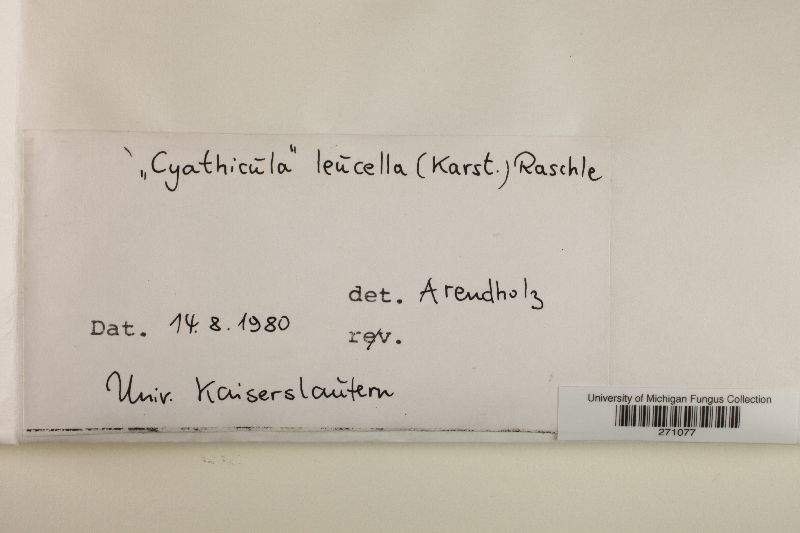 „Cyathicula" leucella (Karst.) Raschle
det. Arendholz
Dat. 14. 8. 1980
rev.
Univ. Kaiserslautern
University of Michigan Fungus Collection
271077